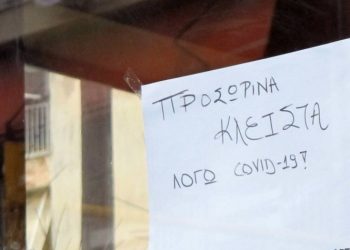 ΠΡΟΣΩΡΙΝΑ
ΚΛΕΙΣΤΑ
ΛΟΓΩ COVID-19!